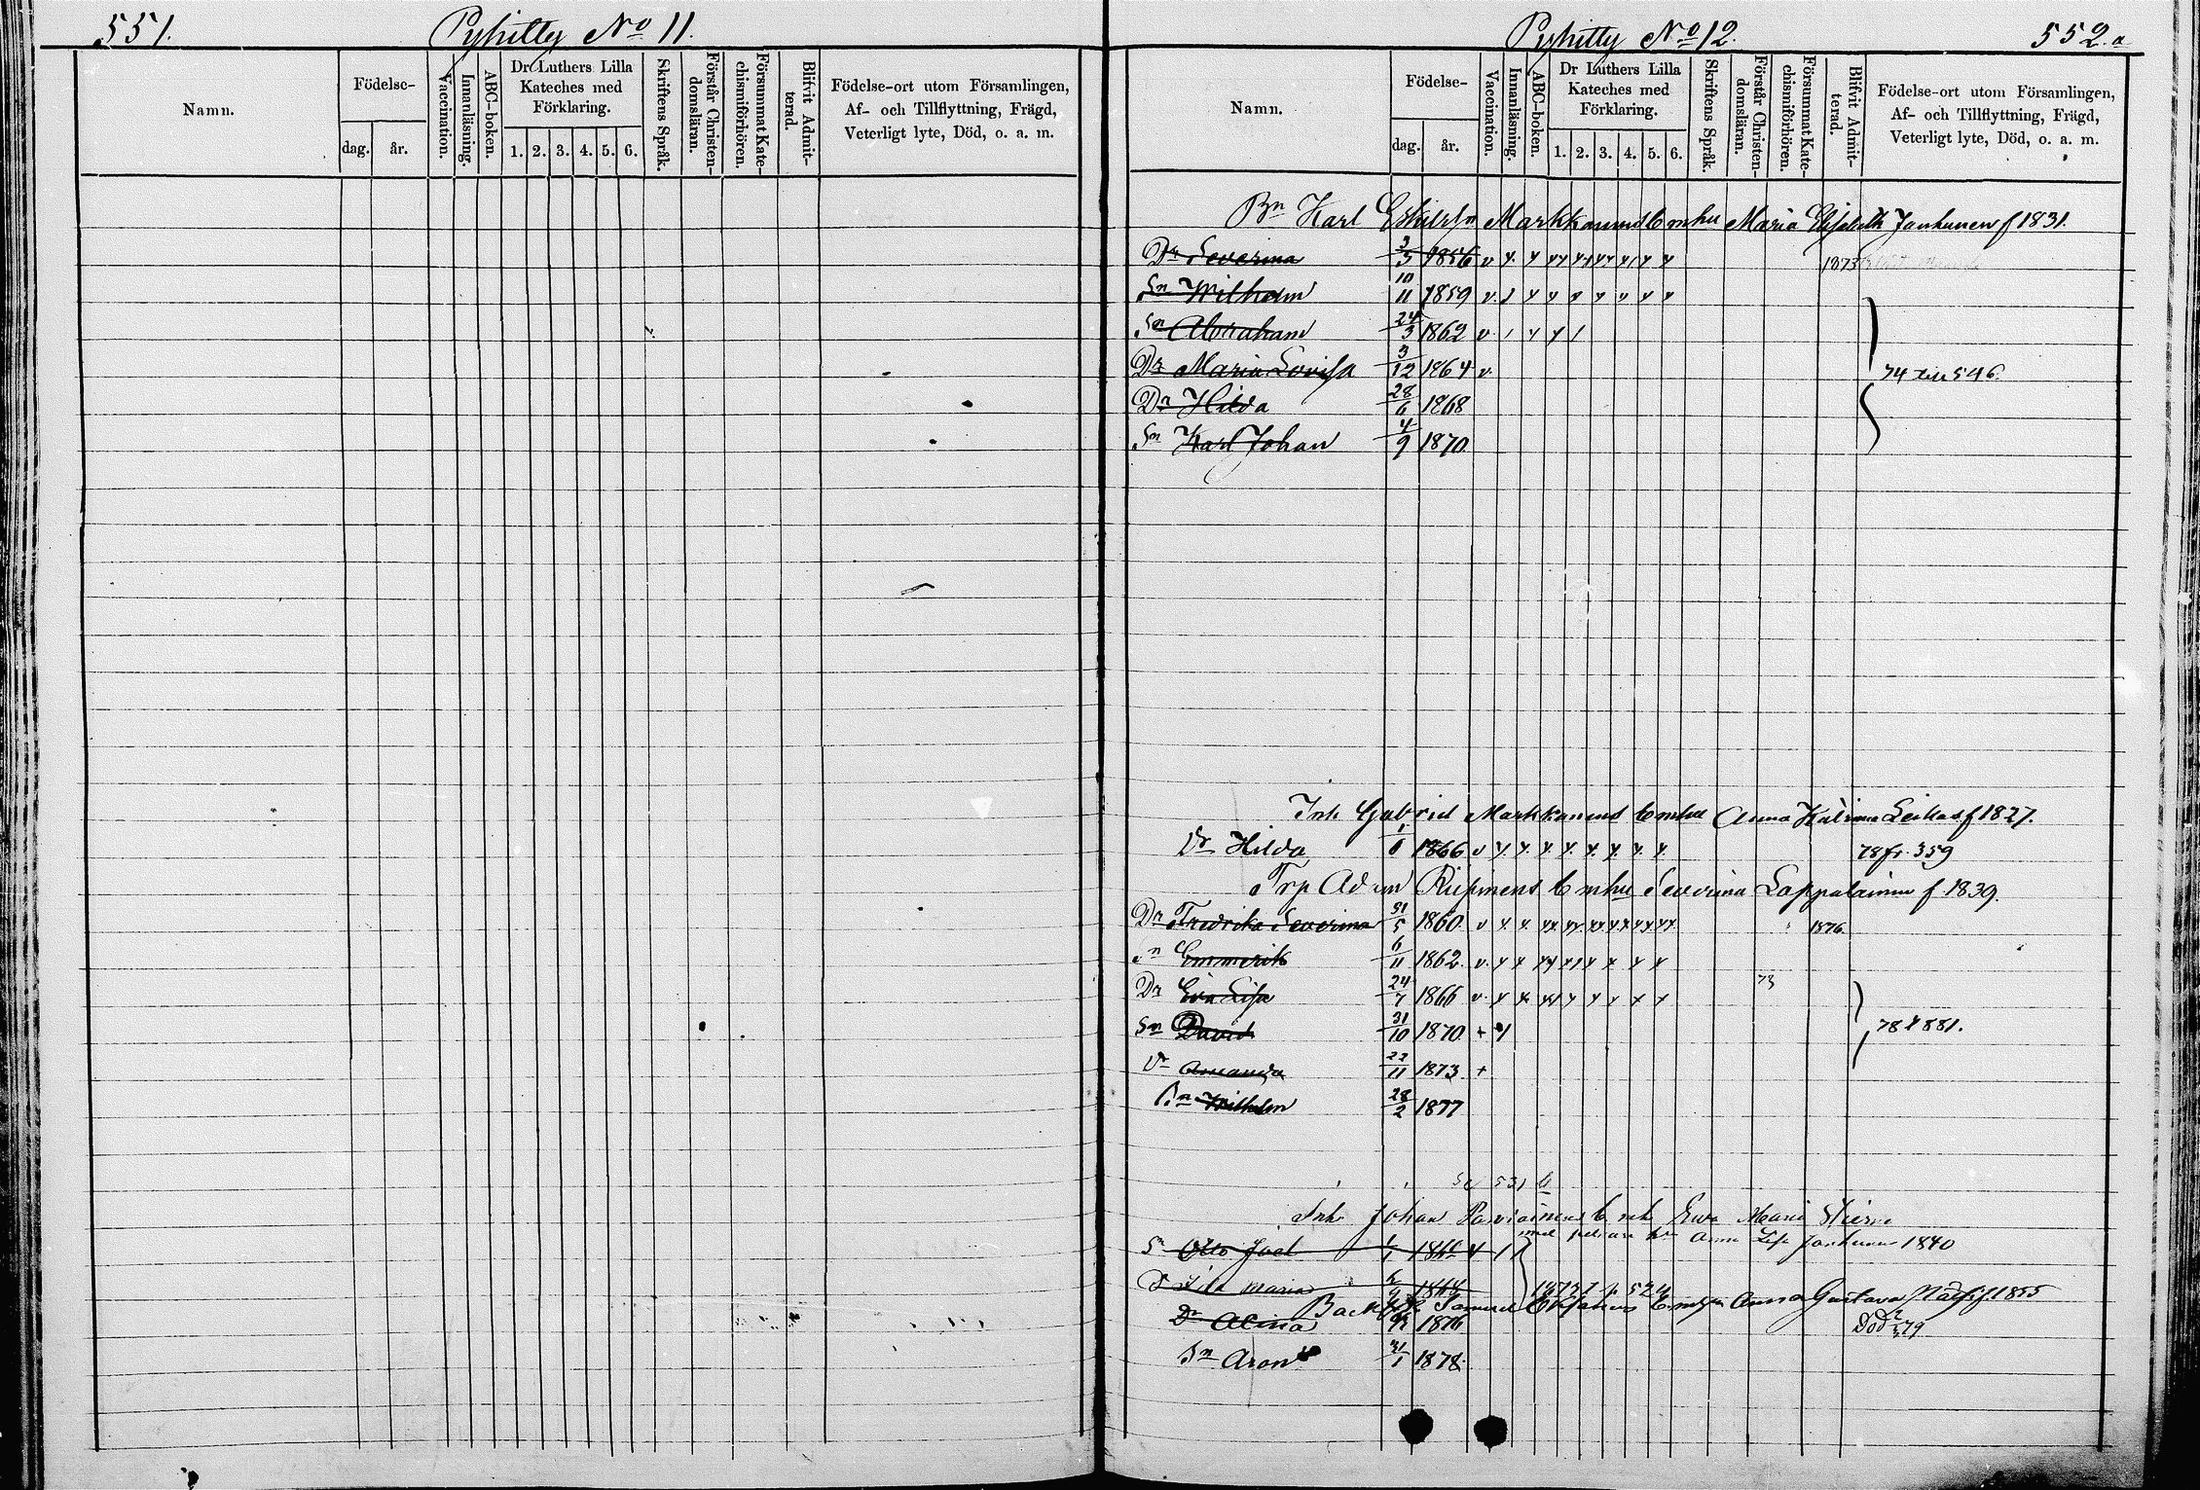 551.
Pyhitty No 11.
Namn.
Födelse-
dag.
år.
Vaccination.
Innanläsning.
ABC-boken.
Dr Luthers Lilla
Kateches med
Förklaring.
1. 2. 3. 4. 5. 6.
Skriftens Språk.
Förstår Christen-
domsläran.
Försummat Kate-
chismiförhören.
Blifvit Admit-
terad.
Födelse-ort utom Församlingen,
Af- och Tillflyttning, Frägd,
Veterligt lyte, Död, o. a. m.
Pyhitty No 12.
552.a
Namn.
Födelse-
dag.
år.
Vaccination.
Innanläsning.
ABC-boken.
Dr Luthers Lilla
Kateches med
Förklaring.
1. 2. 3. 4. 5. 6.
Skriftens Språk.
Förstår Christen-
domsläran.
Försummat Kate-
chismiförhören.
Blifvit Admit-
terad.
Födelse-ort utom Församlingen,
Af- och Tillflyttning, Frägd,
Veterligt lyte, Död, o. a. m.
Bn Karl Markkanens b m hu Maria Elisabeth Janhunen f 1831.
Dr Severina 3/5 1856 v 1873
Sn Wilhelm 10/11 1859 v
Sn Abraham 24/3 1862 v
Dr Maria Lovisa 3/12 1864 v
74 till 546.
Dr Hilda 28/6 1868
Sn Karl Johan 4/9 1870
Inh Gabriel Markkanens b m hu Anna Katrina Leikas f 1827.
Dr Hilda 1866 v 78 fr. 359
Trp Adam b m hu Severina Lappalainen f 1839.
Dr Fredrika Severina 31/5 1860 v 1876
Sn Emmerik 6/11 1862 v
Dr Eva Lisa 24/7 1866 v 73
Sn David 31/10 1870
78 881.
Dr Amanda 22/11 1873
Sn Wilhelm 28/2 1877
531 b
Inh Johan Parviainens b m h Eva Maria
Anna Lisa Janhunen 1840
Sn Otto Joel
D Ida Maria 524
Samuel Anna Gustava 1855
Dr Alina 1876 Död 2/3 79
Sn Aron 31/1 1878